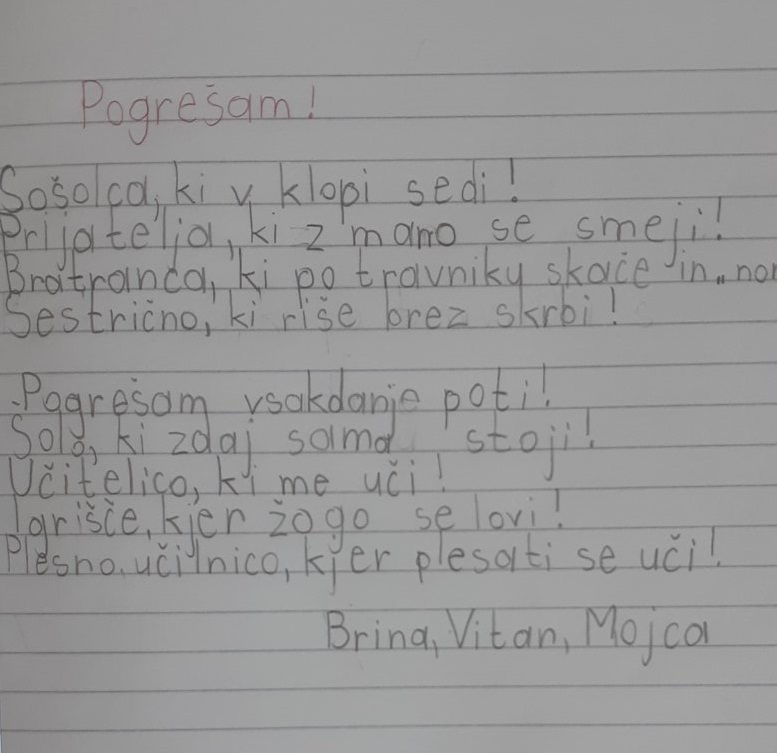 Pogrešam!
Sošolca, ki v klopi sedi!
Prijatelja, ki z mano se smeji!
Bratranca, ki po travniky skače in
Sestrično, ki riše brez skrbi!
Pogrešam vsakdanje poti!
Šolo, ki zdaj sama stoji!
Učitelico, ki me uči!
Igrišče, kjer žogo se lovi!
Plesno učilnico, kjer plesati se uči!
Brina, Vitan, Mojca